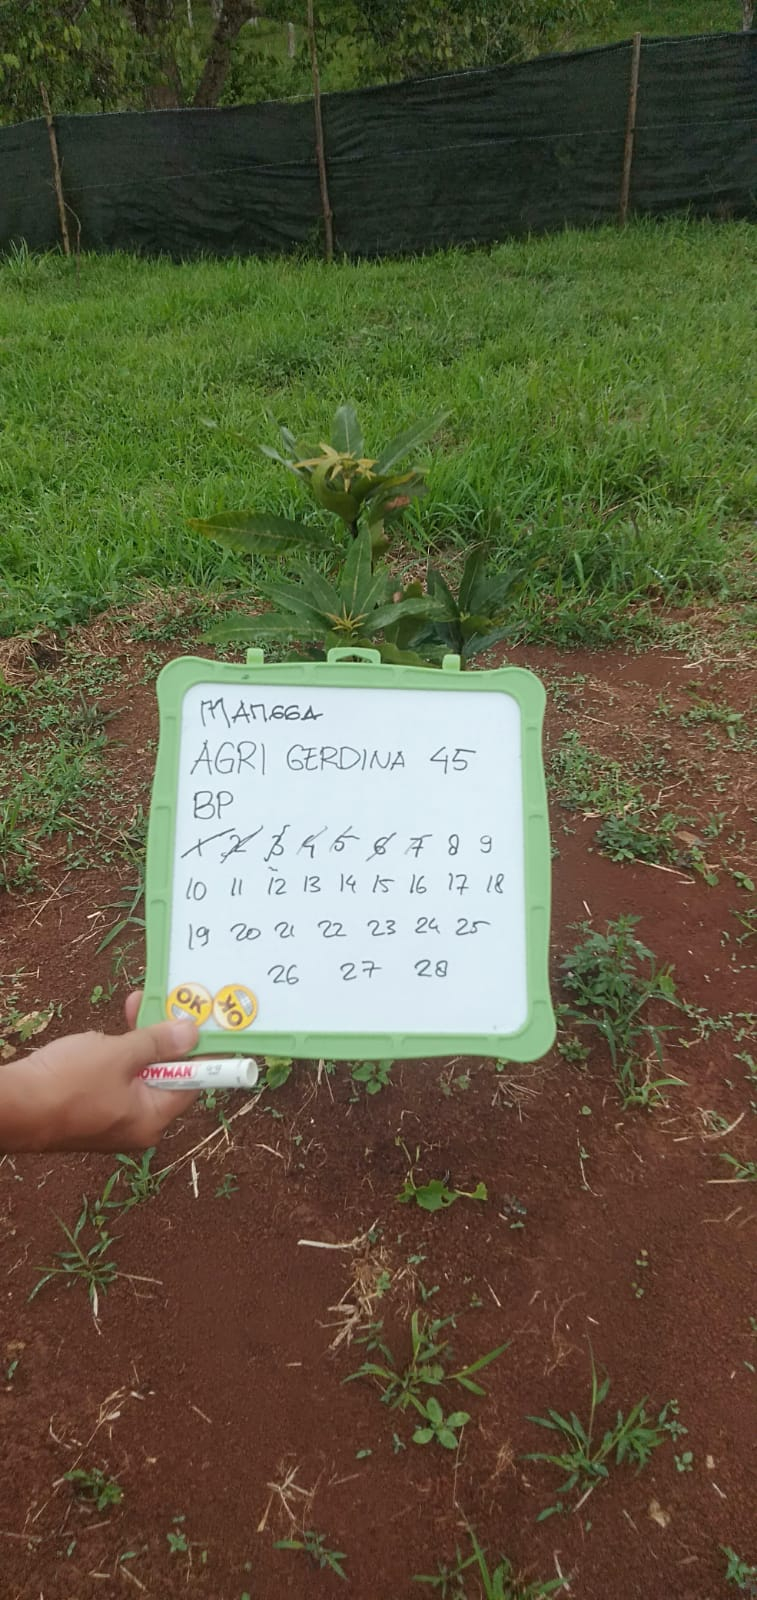 MANGGA
AGRI GERDINA 45
BP
1 2 3 4 5 6 7 8 9
10 11 12 13 14 15 16 17 18
19 20 21 22 23 24 25
26 27 28
OK OK
OWMAN